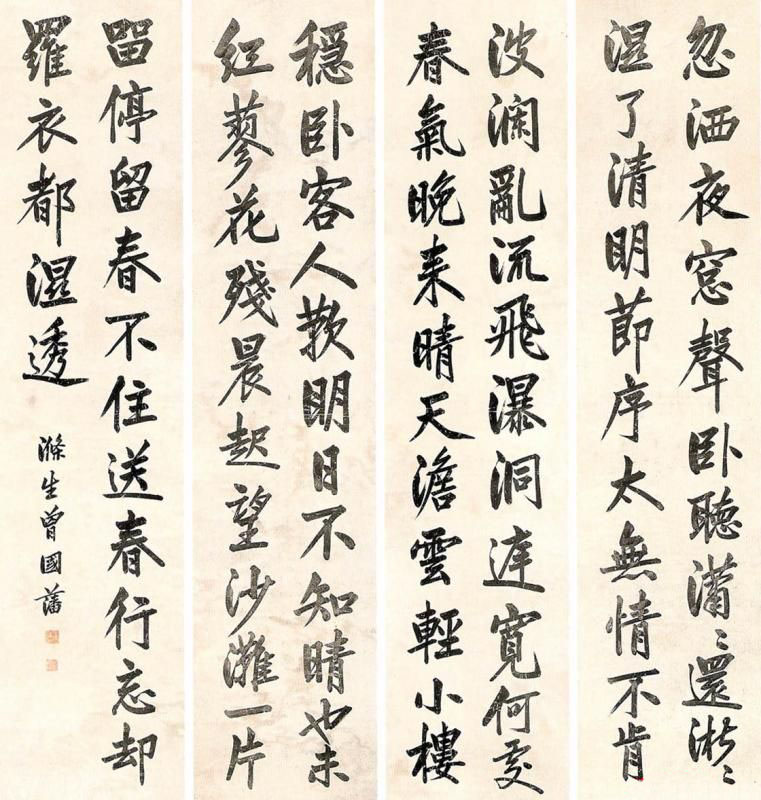 忽洒夜窓聲卧聽瀟〻還淅〻
湿了清明莭序太無情不肯
波瀾亂流飛瀑洞庭寬何處
春氣晚来晴天澹雲輕小樓
穩卧客人歎明日不知晴也未
紅蓼花殘晨起望沙灘一片
畱停留春不住送春行忘却
羅衣都湿透
滌生曾國藩